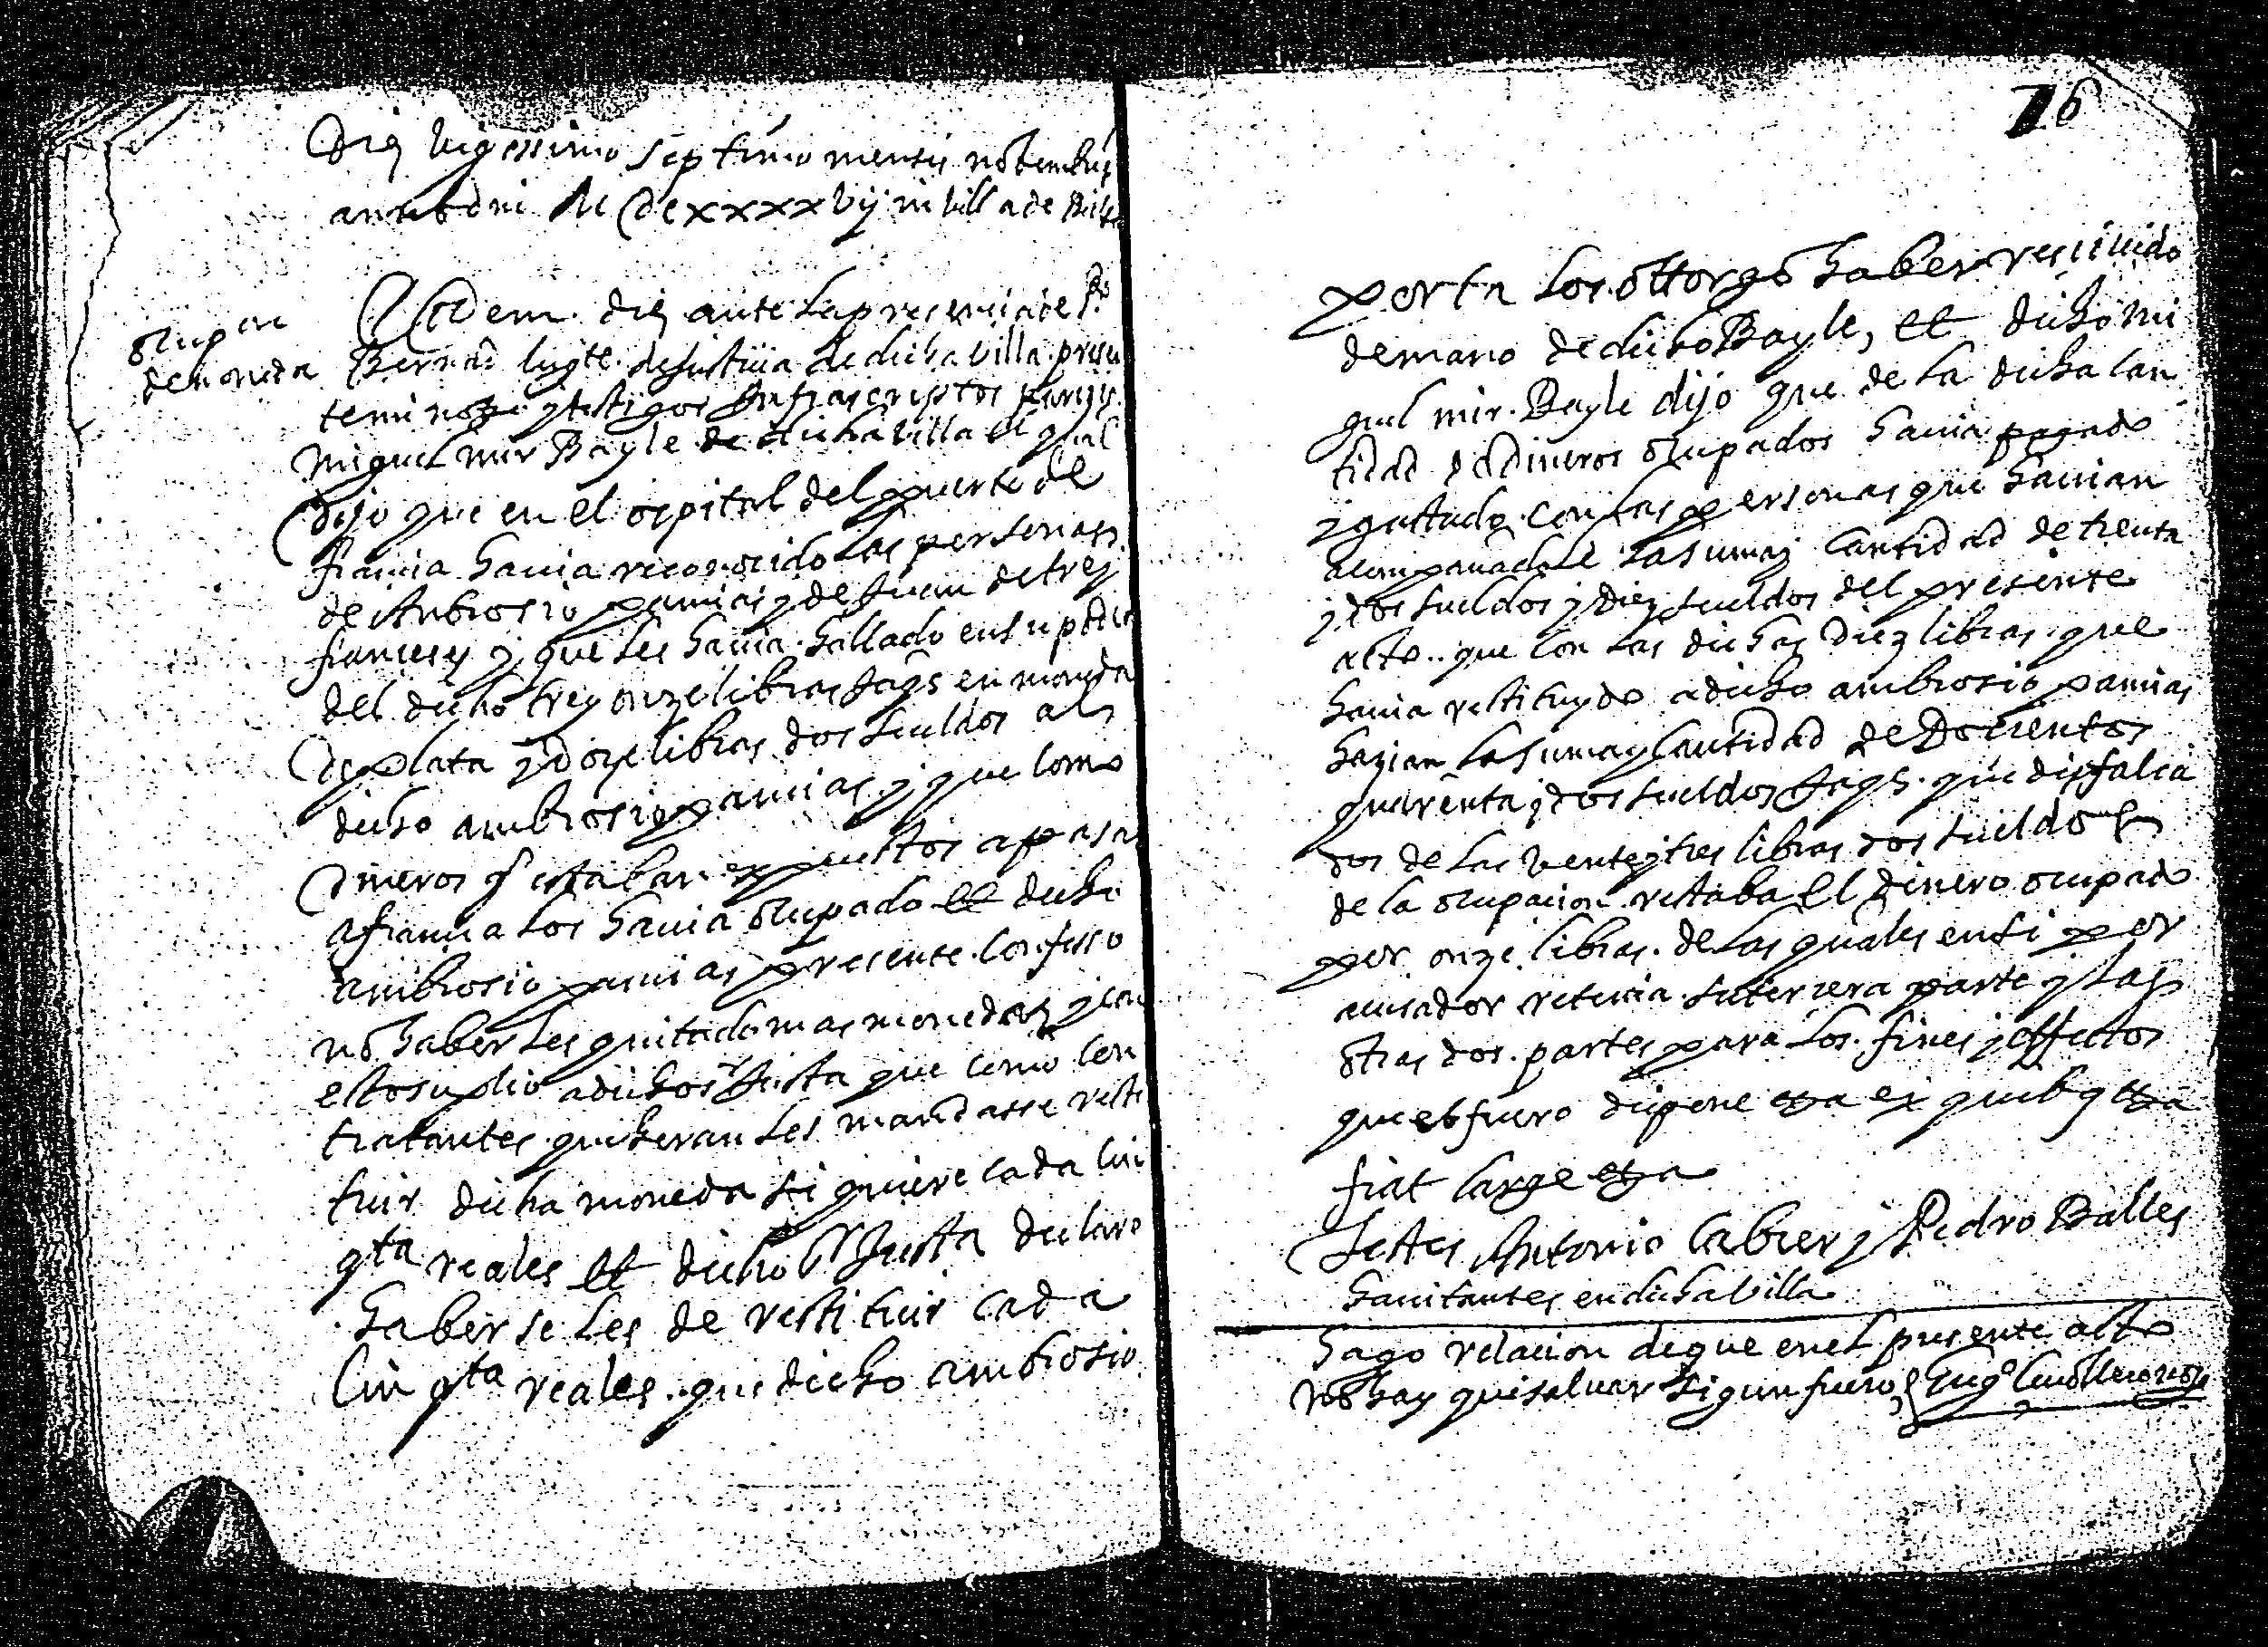 Die vigessimo septimo mensis nobembris
anno dni M dcxxxxvij in villa de Biel
ocupon
de moneda
Eodem die ante la presencia de
Bernad lugte. de justicia de dicha villa presen
te mi notº y testigos infrascriptos
Miguel mir Bayle de dicha villa el qual
Dijo que en el ospital del puerto de
francia havia reconocido las personas
de Anbrosio pamias y de Juan de trey
franceses y que les havia hallado en su poder
del dicho trey onze libras jaqs en moneda
de plata y doze libras dos sueldos al
dicho ambrosio pamias y que como
Dineros q estaban expuestos a pasar
a francia los havia ocupado et dicho
ambrosio pamias presente confesso
no haberles quitado mas moneda y con
esto suplico a dicho sr Justa que como con
tratantes que heran les mandasse resti
tuir dicha moneda si quiere cada cin
qta reales et dicho sr Justa declaro
haberseles de restituir cada
cin qta reales. que dicho ambrosio
76
porta los ottorgo haber rescivido
de mano de dicho Bayle, et dicho Mi
guel mir. Bayle dijo que de la dicha can
tidad de dineros ocupados havia pagado
y gastado con las personas que havian
acompañadole la suma y cantidad de trenta
y dos sueldos y diez sueldos del presente
acto.. que con las dichas Diez libras que
havia restituydo a dicho ambrosio pamias
hazian la suma y cantidad de Docientos
quarenta y dos sueldos jaqs. que disfalca
dos de las vente y tres libras dos sueldos
de la ocupacion restaba el dinero ocupado
por onze libras. de las quales en si por
acusador retenia su tercera parte y las
otras dos. partes para los. fines y effectos
que el fuero dispone etza ex quibq etza
fiat large etza
Testes Antonio Cabrer y Pedro Balles
havitantes en dicha villa
Hago relacion de que en el presente acto
no hay que salvar sigun fuero